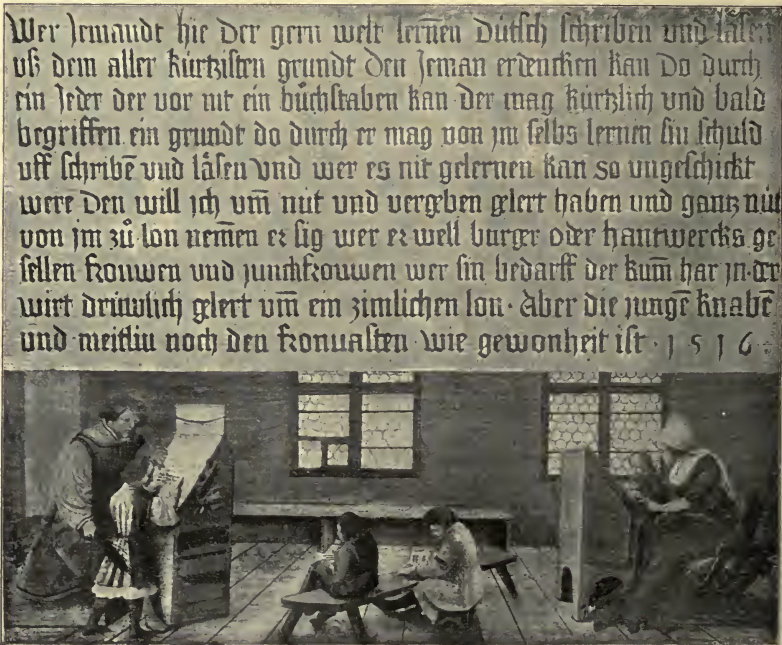 Wer Jemandt hie der gern welt lernen Dütsch schriben und läsen
uß dem aller kürtzisten grundt den Jeman erdencken kan Do durch
ein Jeder der vor nit ein büchstaben kan der mag kürtzlich und bald
begriffen ein grundt do durch er mag von jm selbs lernen sin schuld
uff schribē vnd läsen Vnd wer es nit gelernen kan so ungeschickt
were Den will ich vm̄ nüt und vergeben gelert haben und gantz nüt
von jm zů lon nem̄en er sig wer er well burger oder hantwercks ge
sellen frouwen vnd junckfrouwen wer sin bedarff der kum̄ har jn der
wirt drüwlich gelert vm̄ ein zimlichen lon · Aber die jungē knabē
und meitlin noch den fronuasten wie gewonheit ist · 1 5 1 6 ·